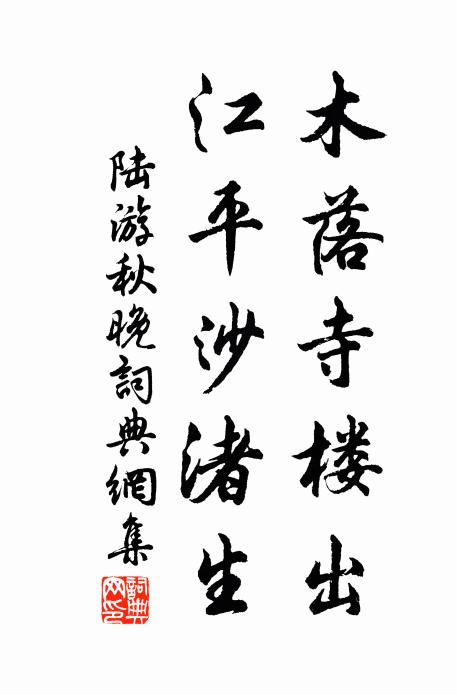 木落寺楼出
江平沙渚生
陆游秋晚詞典網集
詞典網印